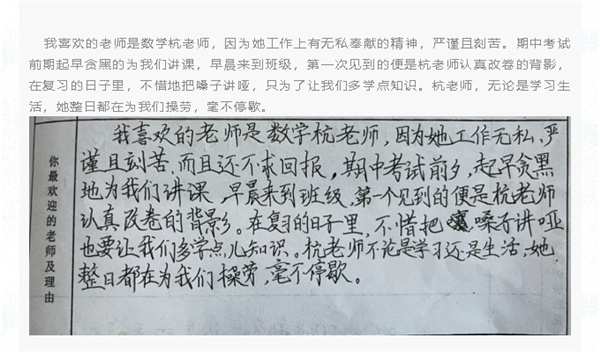 我喜欢的老师是数学杭老师，因为她工作上有无私奉献的精神，严谨且刻苦。期中考试
前期起早贪黑的为我们讲课，早晨来到班级，第一次见到的便是杭老师认真改卷的背影，
在复习的日子里，不惜地把嗓子讲哑，只为了让我们多学点知识。杭老师，无论是学习生
活，她整日都在为我们操劳，毫不停歇。
你最欢迎的老师及理由
我喜欢的老师是数学杭老师，因为她工作无私、严
谨且刻苦，而且还不求回报，期中考试前夕，起早贪黑
地为我们讲课，早晨来到班级，第一个见到的便是杭老师
认真改卷的背影。在复习的日子里，不惜把嗓子讲哑
也要让我们多学点儿知识。杭老师不论是学习还是生活，她
整日都在为我们操劳，毫不停歇。